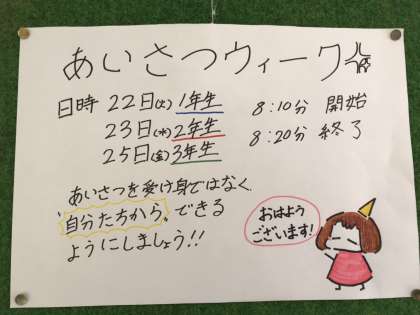 あいさつウィーク
日時 22日(火) 1年生
23日(水) 2年生
25日(金) 3年生
8:10分 開始
8:20分 終了
あいさつを受け身ではなく、
"自分たちから"できる
ようにしましょう!!
おはよう
ございます!